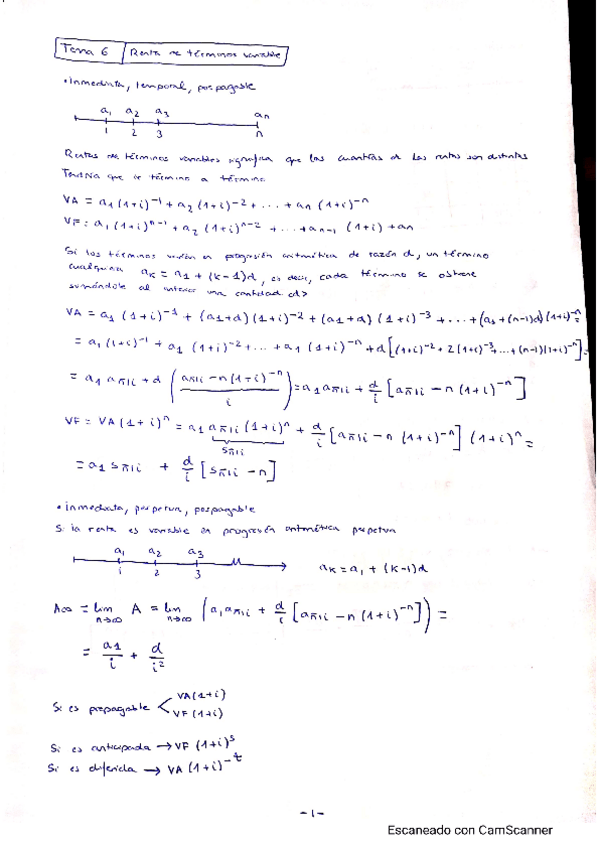 Tema 6 | Renta de términos variable
• Inmediata, temporal, pospagable
a1 a2 a3 an
1 2 3 n
Rentas de términos variables significa que las cuantías de las rentas son distintas
término a término
VA = a1 (1+i)^-1 + a2 (1+i)^-2 + ... + an (1+i)^-n
VF = a1 (1+i)^n-1 + a2 (1+i)^n-2 + ... + an-1 (1+i) + an
Si los términos varían en progresión aritmética de razón d, un término
cualquiera aK = a1 + (K-1)d, es decir, cada término se obtiene
sumándole al anterior una cantidad <d>
VA = a1 (1+i)^-1 + (a1+d) (1+i)^-2 + (a1+d) (1+i)^-3 + ... + (a1 + (n-1)d) (1+i)^-n =
= a1 (1+i)^-1 + a1 (1+i)^-2 + ... + a1 (1+i)^-n + d [(1+i)^-2 + 2(1+i)^-3 + ... + (n-1)(1+i)^-n] =
= a1 an̅|i + d ( an̅|i - n(1+i)^-n / i ) = a1 an̅|i + d/i [an̅|i - n (1+i)^-n]
VF = VA (1+i)^n = a1 an̅|i (1+i)^n + d/i [an̅|i - n (1+i)^-n] (1+i)^n =
Sn̅|i
= a1 Sn̅|i + d/i [Sn̅|i - n]
• inmediata, perpetua, pospagable
Si la renta es variable en progresión aritmética perpetua
a1 a2 a3
1 2 3
aK = a1 + (K-1)d
A∞ = lim n→∞ A = lim n→∞ (a1 an̅|i + d/i [an̅|i - n (1+i)^-n]) =
= a1/i + d/i²
Si es prepagable < VA (1+i)
VF (1+i)
Si es anticipada → VF (1+i)^s
Si es diferida → VA (1+i)^-t
-1-
Escaneado con CamScanner